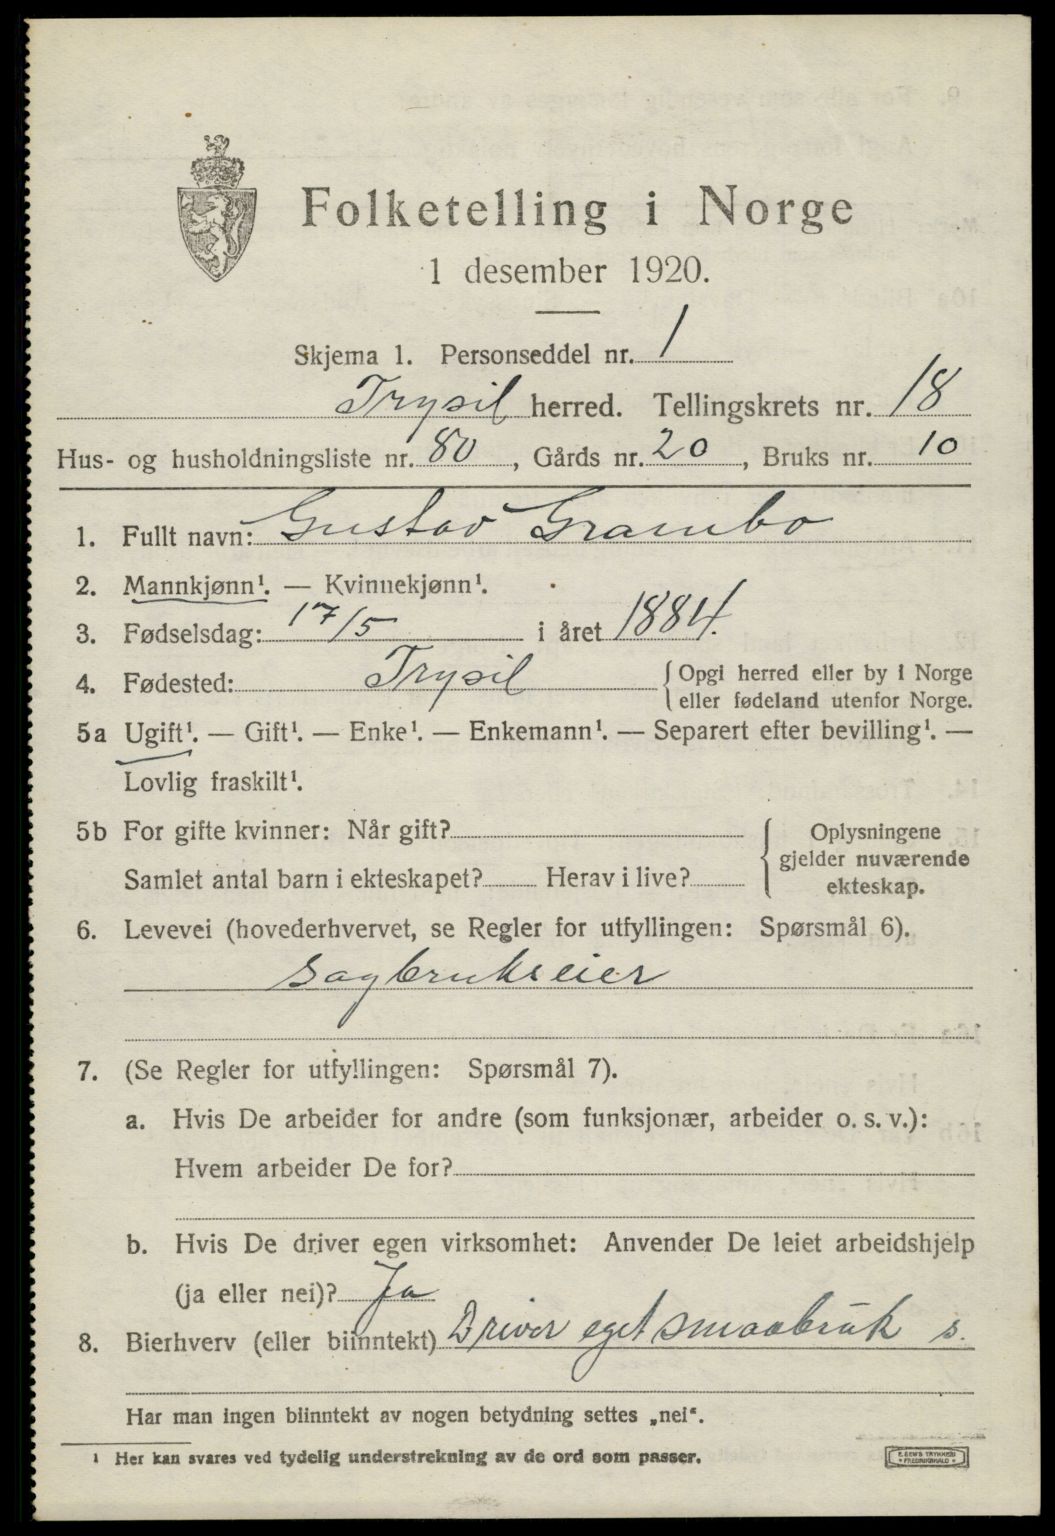 Folketelling i Norge
1 desember 1920.
Skjema 1. Personseddel nr. 1
Trysil herred. Tellingskrets nr. 18
Hus- og husholdningsliste nr. 80, Gårds nr. 20, Bruks nr. 10
1. Fullt navn: Gustav Grambo
2. Mannkjønn¹. — Kvinnekjønn¹.
3. Fødselsdag: 17/5 i året 1884.
4. Fødested: Trysil {Opgi herred eller by i Norge
eller fødeland utenfor Norge.
5a Ugift¹. — Gift¹. — Enke¹. — Enkemann¹. — Separert efter bevilling¹. —
Lovlig fraskilt¹.
5b For gifte kvinner: Når gift? { Oplysningene
gjelder nuværende
Samlet antal barn i ekteskapet? Herav i live? ekteskap.
6. Levevei (hovederhvervet, se Regler for utfyllingen: Spørsmål 6).
sagbrukseier
7. (Se Regler for utfyllingen: Spørsmål 7).
a. Hvis De arbeider for andre (som funksjonær, arbeider o. s. v.):
Hvem arbeider De for?
b. Hvis De driver egen virksomhet: Anvender De leiet arbeidshjelp
(ja eller nei)? Ja
8. Bierhverv (eller biinntekt) Driver eget smaabruk s.
Har man ingen biinntekt av nogen betydning settes „nei".
¹ Her kan svares ved tydelig understrekning av de ord som passer.